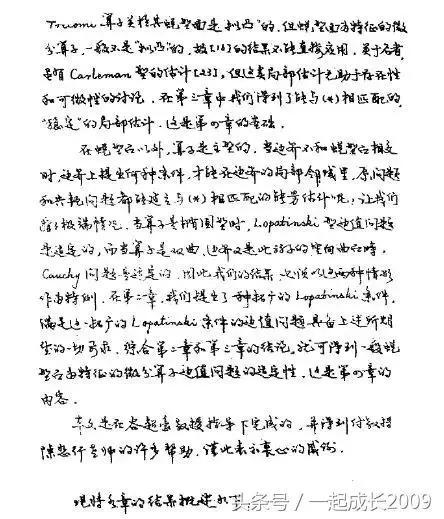 Tricomi 算子关于其蜕型面是"利凸"的，但蜕型面为特征的微
分算子，一般不是"利凸"的，故[18]的结果不能直接应用。关于后者，
虽有 Carleman 型的估计[23]，但这类局部估计无助于存在性
和可微性的讨论。在第三章中我们得到了能与(*)相匹配的
"稳定"的局部估计，这是第四章的基础。
在蜕型面以外，算子是主型的，当边界不和蜕型面相交
时，边界上提出何种条件，才能在边界的局部邻域里，原问题
和共轭问题都能建立与(*)相匹配的能量估计呢？让我们
看极端情况，当算子是椭圆型时，Lopatinski 型边值问题
是适定的，而当算子是双曲，边界又是此算子的空间曲面时，
Cauchy 问题是适定的，因此我们的结果必须以这两种情形
作为特例。在第二章，我们提出了一种推广的 Lopatinski 条件，
满足这一推广的 Lopatinski 条件的边值问题具备上述所期
望的一切要求。综合第二章和第三章的结论，就可得到一般蜕
型面为特征的微分算子边值问题的适定性，这是第四章的
内容。
本文是在谷超豪教授指导下完成的，并得到
陈恕行老师的许多帮助，谨此表示衷心的感谢。
现将各章的结果概述如下
头条号 / 一起成长2009